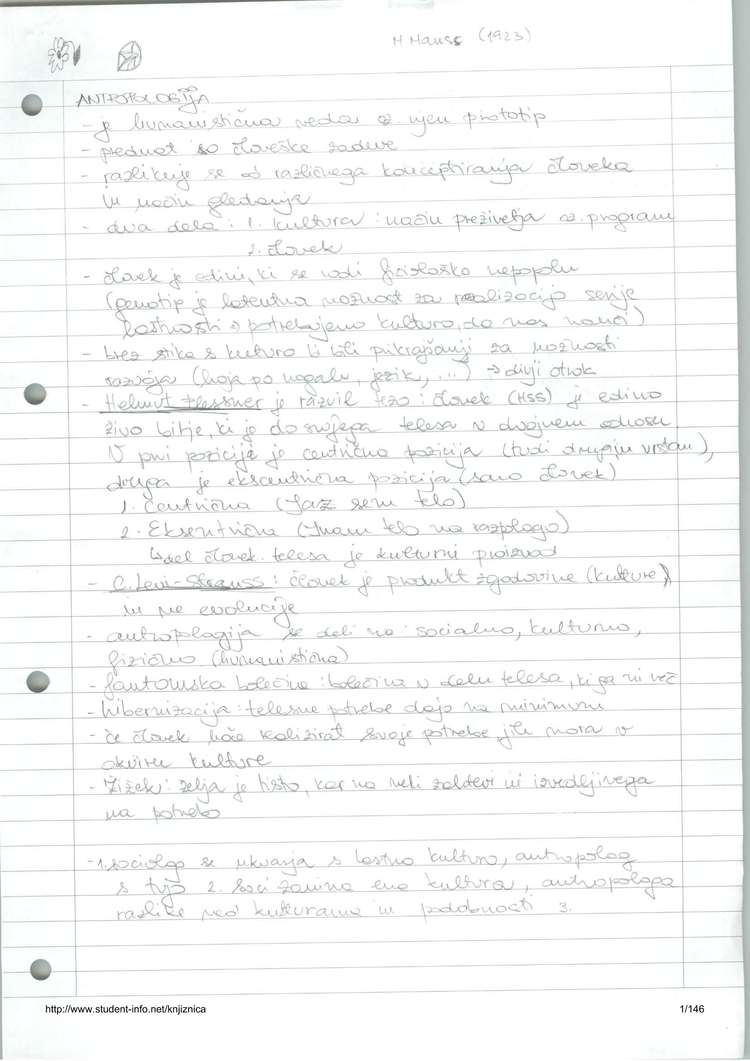 M Mauss (1923)
ANTROPOLOGIJA
- je humanistična veda oz. njen prototip
- predmet so človeške zadeve
- razlikuje se od različnega konceptiranja človeka
in način gledanja
- dva dela: 1. kultura: način preživetja oz. program
2. človek
- človek je edini, ki se rodi fiziološko nepopoln
(genotip je latentna možnost za realizacijo serije
lastnosti → potrebujemo kulturo, da nas nauči)
- brez stika s kulturo bi bili prikrajšani za možnosti
razvoja (hoja po nogah, jezik, ...) → divji otrok
- Helmut Plessner je razvil tezo: človek (HSS) je edino
živo bitje, ki je do svojega telesa v dvojnem odnosu.
V prvi poziciji je centrična pozicija (tudi drugim vrstam),
druga je ekscentrična pozicija (samo človek)
1. Centrična (Jaz sem telo)
2. Eksentrična (Imam telo na razpolago)
↳ del človek. telesa je kulturni proizvod
- C. Levi-Strauss: človek je produkt zgodovine (kulture)
in ne evolucije
- antroplogija se deli na socialno, kulturno,
fizično (humanistična)
- fantomska bolečina: bolečina v delu telesa, ki ga ni več
- hibernizacija: telesne potrebe dajo na minimum
- če človek hoče realizirat svoje potrebe, jih mora v
okviru kulture
- Žižek: želja je tisto, kar na neki zahtevi ni izvedljivega
na potrebo
- 1. sociolog se ukvarja s lastno kulturo, antropolog
s tujo 2. soci zanima ena kultura, antropologa
razlike med kulturama in podobnosti 3.
http://www.student-info.net/knjiznica
1/146